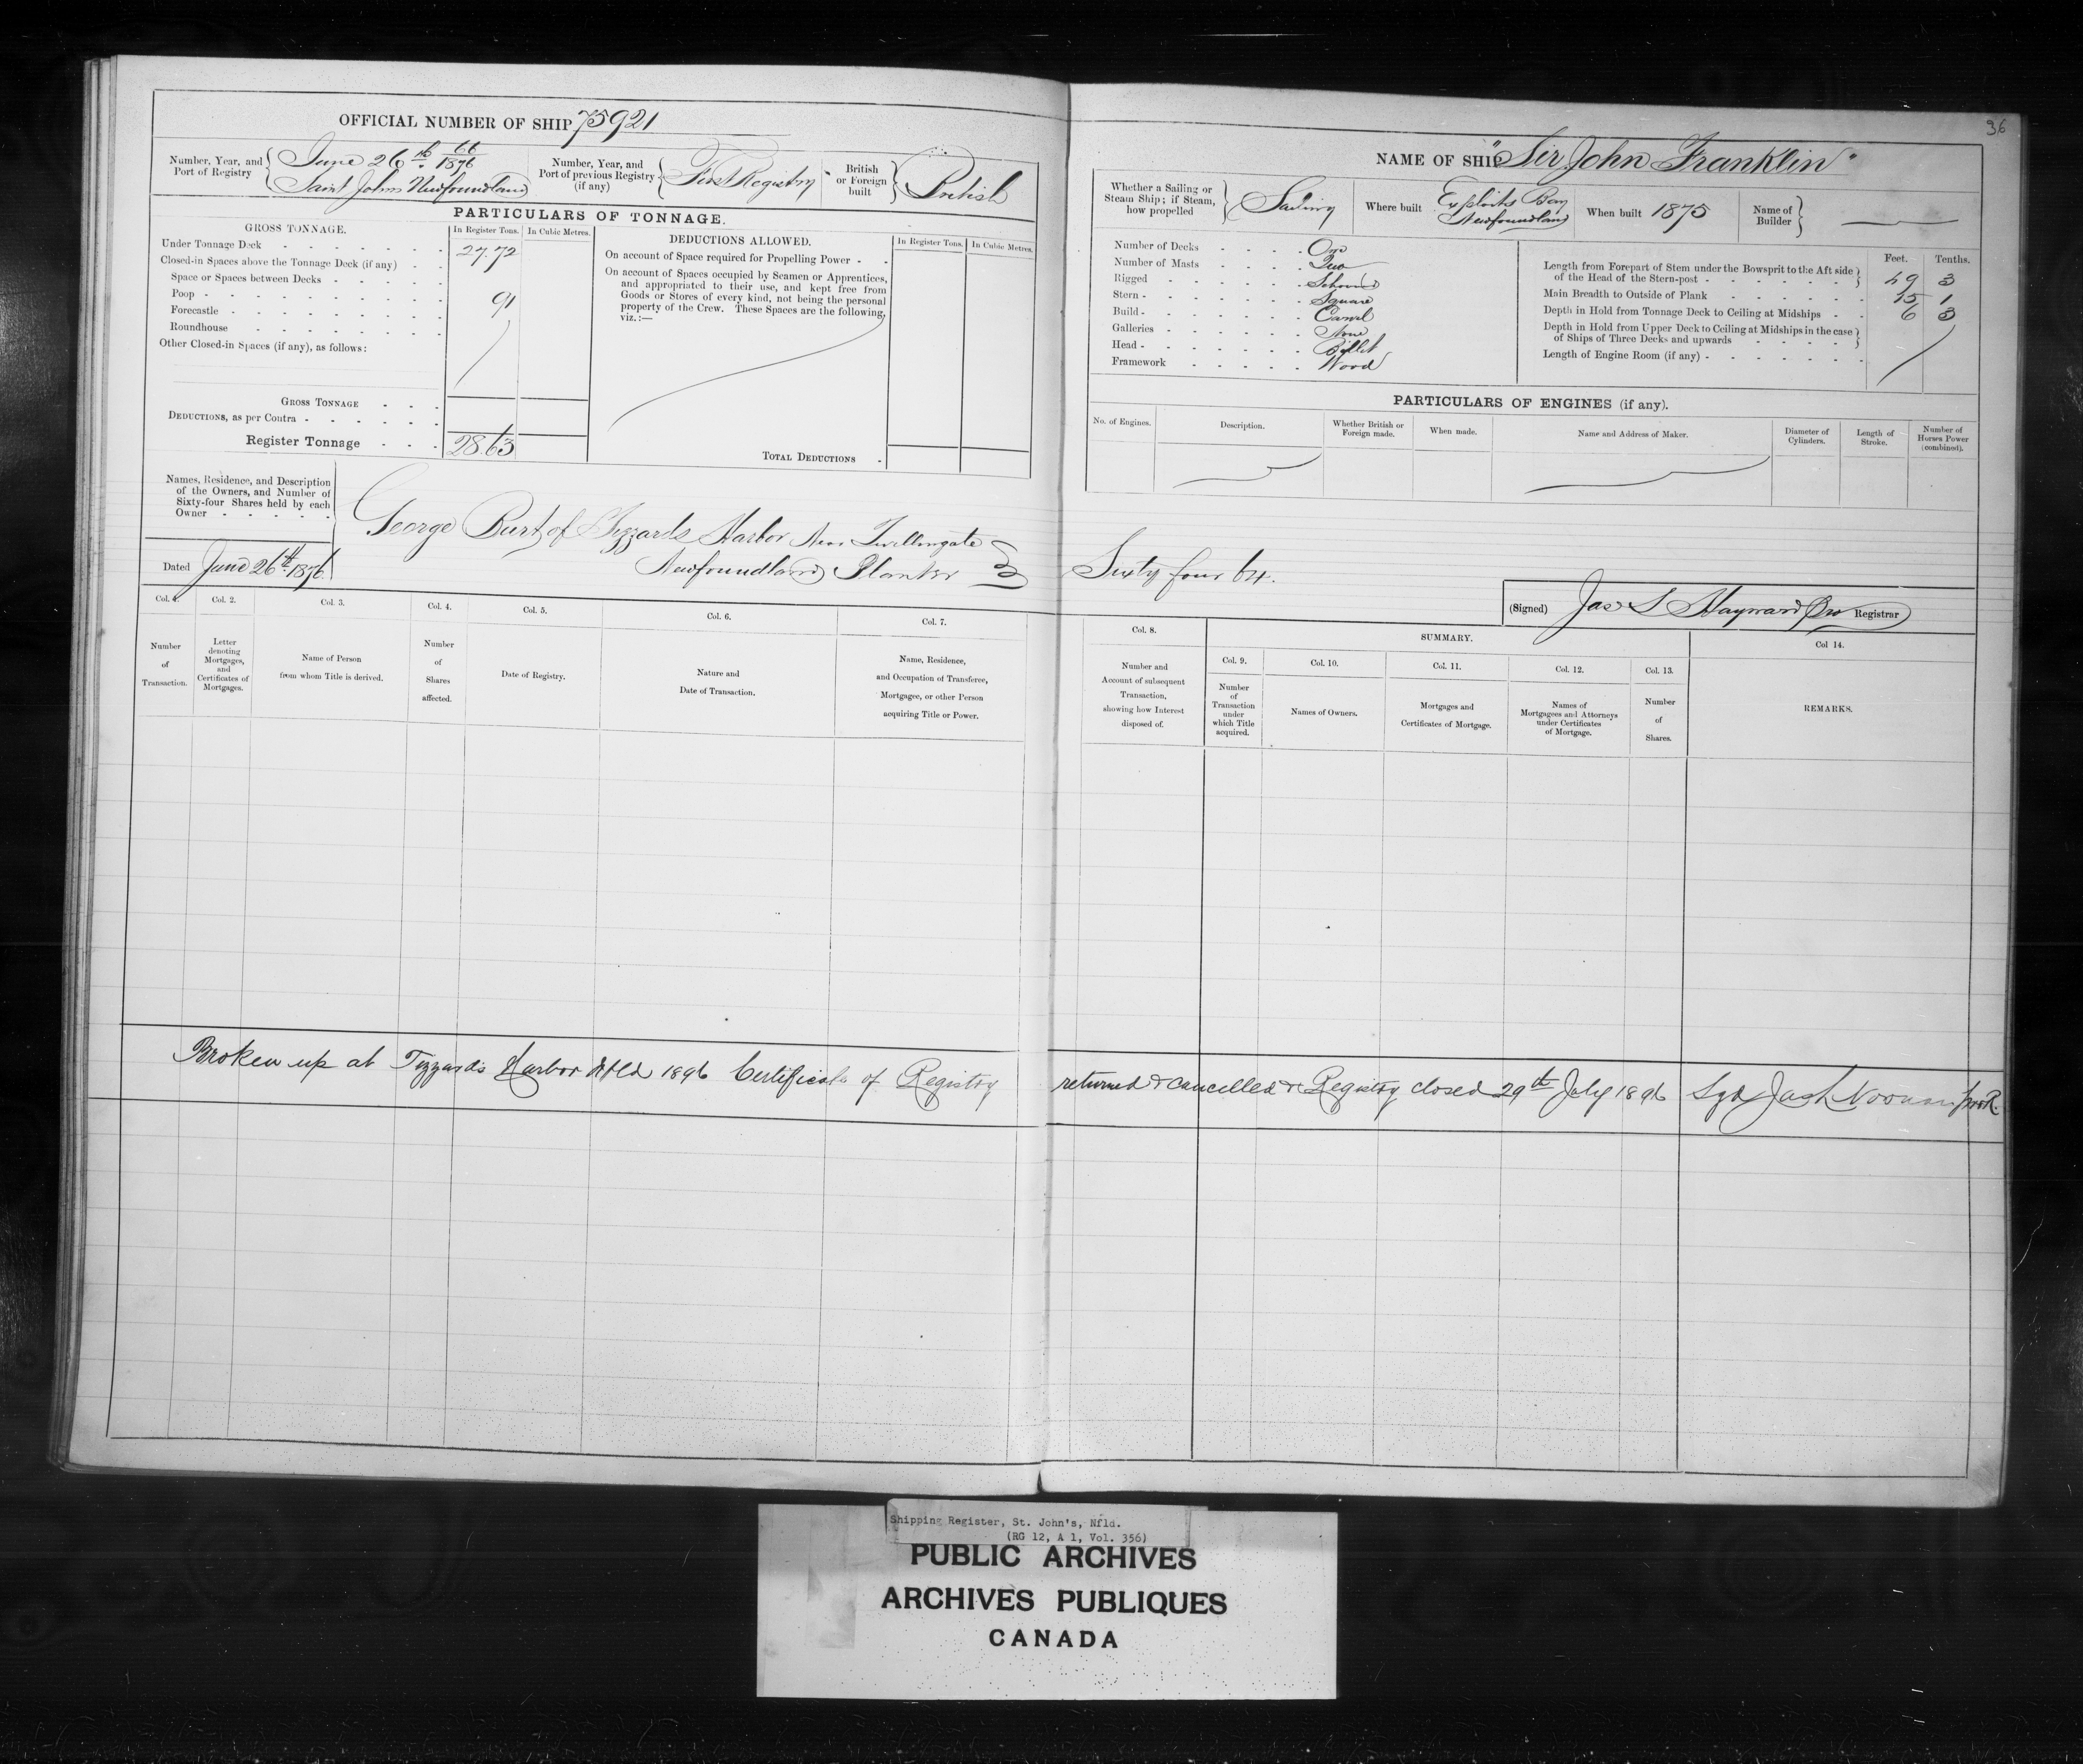 36
OFFICIAL NUMBER OF SHIP 75921
Number, Year, and Port of Registry
June 26th 66/1876
Saint Johns Newfoundland
Number, Year, and Port of previous Registry (if any)
First Registry
British or Foreign built
British
PARTICULARS OF TONNAGE.
GROSS TONNAGE.
In Register Tons. In Cubic Metres.
Under Tonnage Deck 27.72
Closed-in Spaces above the Tonnage Deck (if any)
Space or Spaces between Decks
Poop 91
Forecastle
Roundhouse
Other Closed-in Spaces (if any), as follows:
GROSS TONNAGE
DEDUCTIONS, as per Contra
Register Tonnage 28.63
DEDUCTIONS ALLOWED.
In Register Tons. In Cubic Metres.
On account of Space required for Propelling Power
On account of Spaces occupied by Seamen or Apprentices,
and appropriated to their use, and kept free from
Goods or Stores of every kind, not being the personal
property of the Crew. These Spaces are the following,
viz.:—
TOTAL DEDUCTIONS
Names, Residence, and Description
of the Owners, and Number of
Sixty-four Shares held by each
Owner
George Burt of Tizzards Harbor Near Twillingate
Newfoundland Planter
Dated June 26th 1876
NAME OF SHIP "Sir John Franklin"
Whether a Sailing or Steam Ship; if Steam, how propelled
Sailing
Where built
Exploits Bay
Newfoundland
When built 1875
Name of Builder
Number of Decks One
Number of Masts Two
Rigged
Stern Square
Build Carvel
Galleries None
Head Billet
Framework Wood
Feet. Tenths.
Length from Forepart of Stem under the Bowsprit to the Aft side
of the Head of the Stern-post 49 3
Main Breadth to Outside of Plank 15 1
Depth in Hold from Tonnage Deck to Ceiling at Midships 6 3
Depth in Hold from Upper Deck to Ceiling at Midships in the case
of Ships of Three Decks and upwards
Length of Engine Room (if any)
PARTICULARS OF ENGINES (if any).
No. of Engines.
Description.
Whether British or Foreign made.
When made.
Name and Address of Maker.
Diameter of Cylinders.
Length of Stroke.
Number of Horses Power (combined).
Sixty four 64.
(Signed) Jas S Hayward Pro Registrar
Col. 1. Col. 2. Col. 3. Col. 4. Col. 5. Col. 6. Col. 7.
Number of Transaction.
Letter denoting Mortgages, and Certificates of Mortgages.
Name of Person from whom Title is derived.
Number of Shares affected.
Date of Registry.
Nature and Date of Transaction.
Name, Residence, and Occupation of Transferee, Mortgagee, or other Person acquiring Title or Power.
Col. 8.
SUMMARY.
Col. 9. Col. 10. Col. 11. Col. 12. Col. 13. Col 14.
Number and Account of subsequent Transaction, showing how Interest disposed of.
Number of Transaction under which Title acquired.
Names of Owners.
Mortgages and Certificates of Mortgage.
Names of Mortgagees and Attorneys under Certificates of Mortgage.
Number of Shares.
REMARKS.
Broken up at Tizzards Harbor Nfld 1896 Certificate of Registry returned & cancelled & Registry closed 29th July 1896 Sgd Noonan pro R.
Shipping Register, St. John's, Nfld.
(RG 12, A 1, Vol. 356)
PUBLIC ARCHIVES
ARCHIVES PUBLIQUES
CANADA